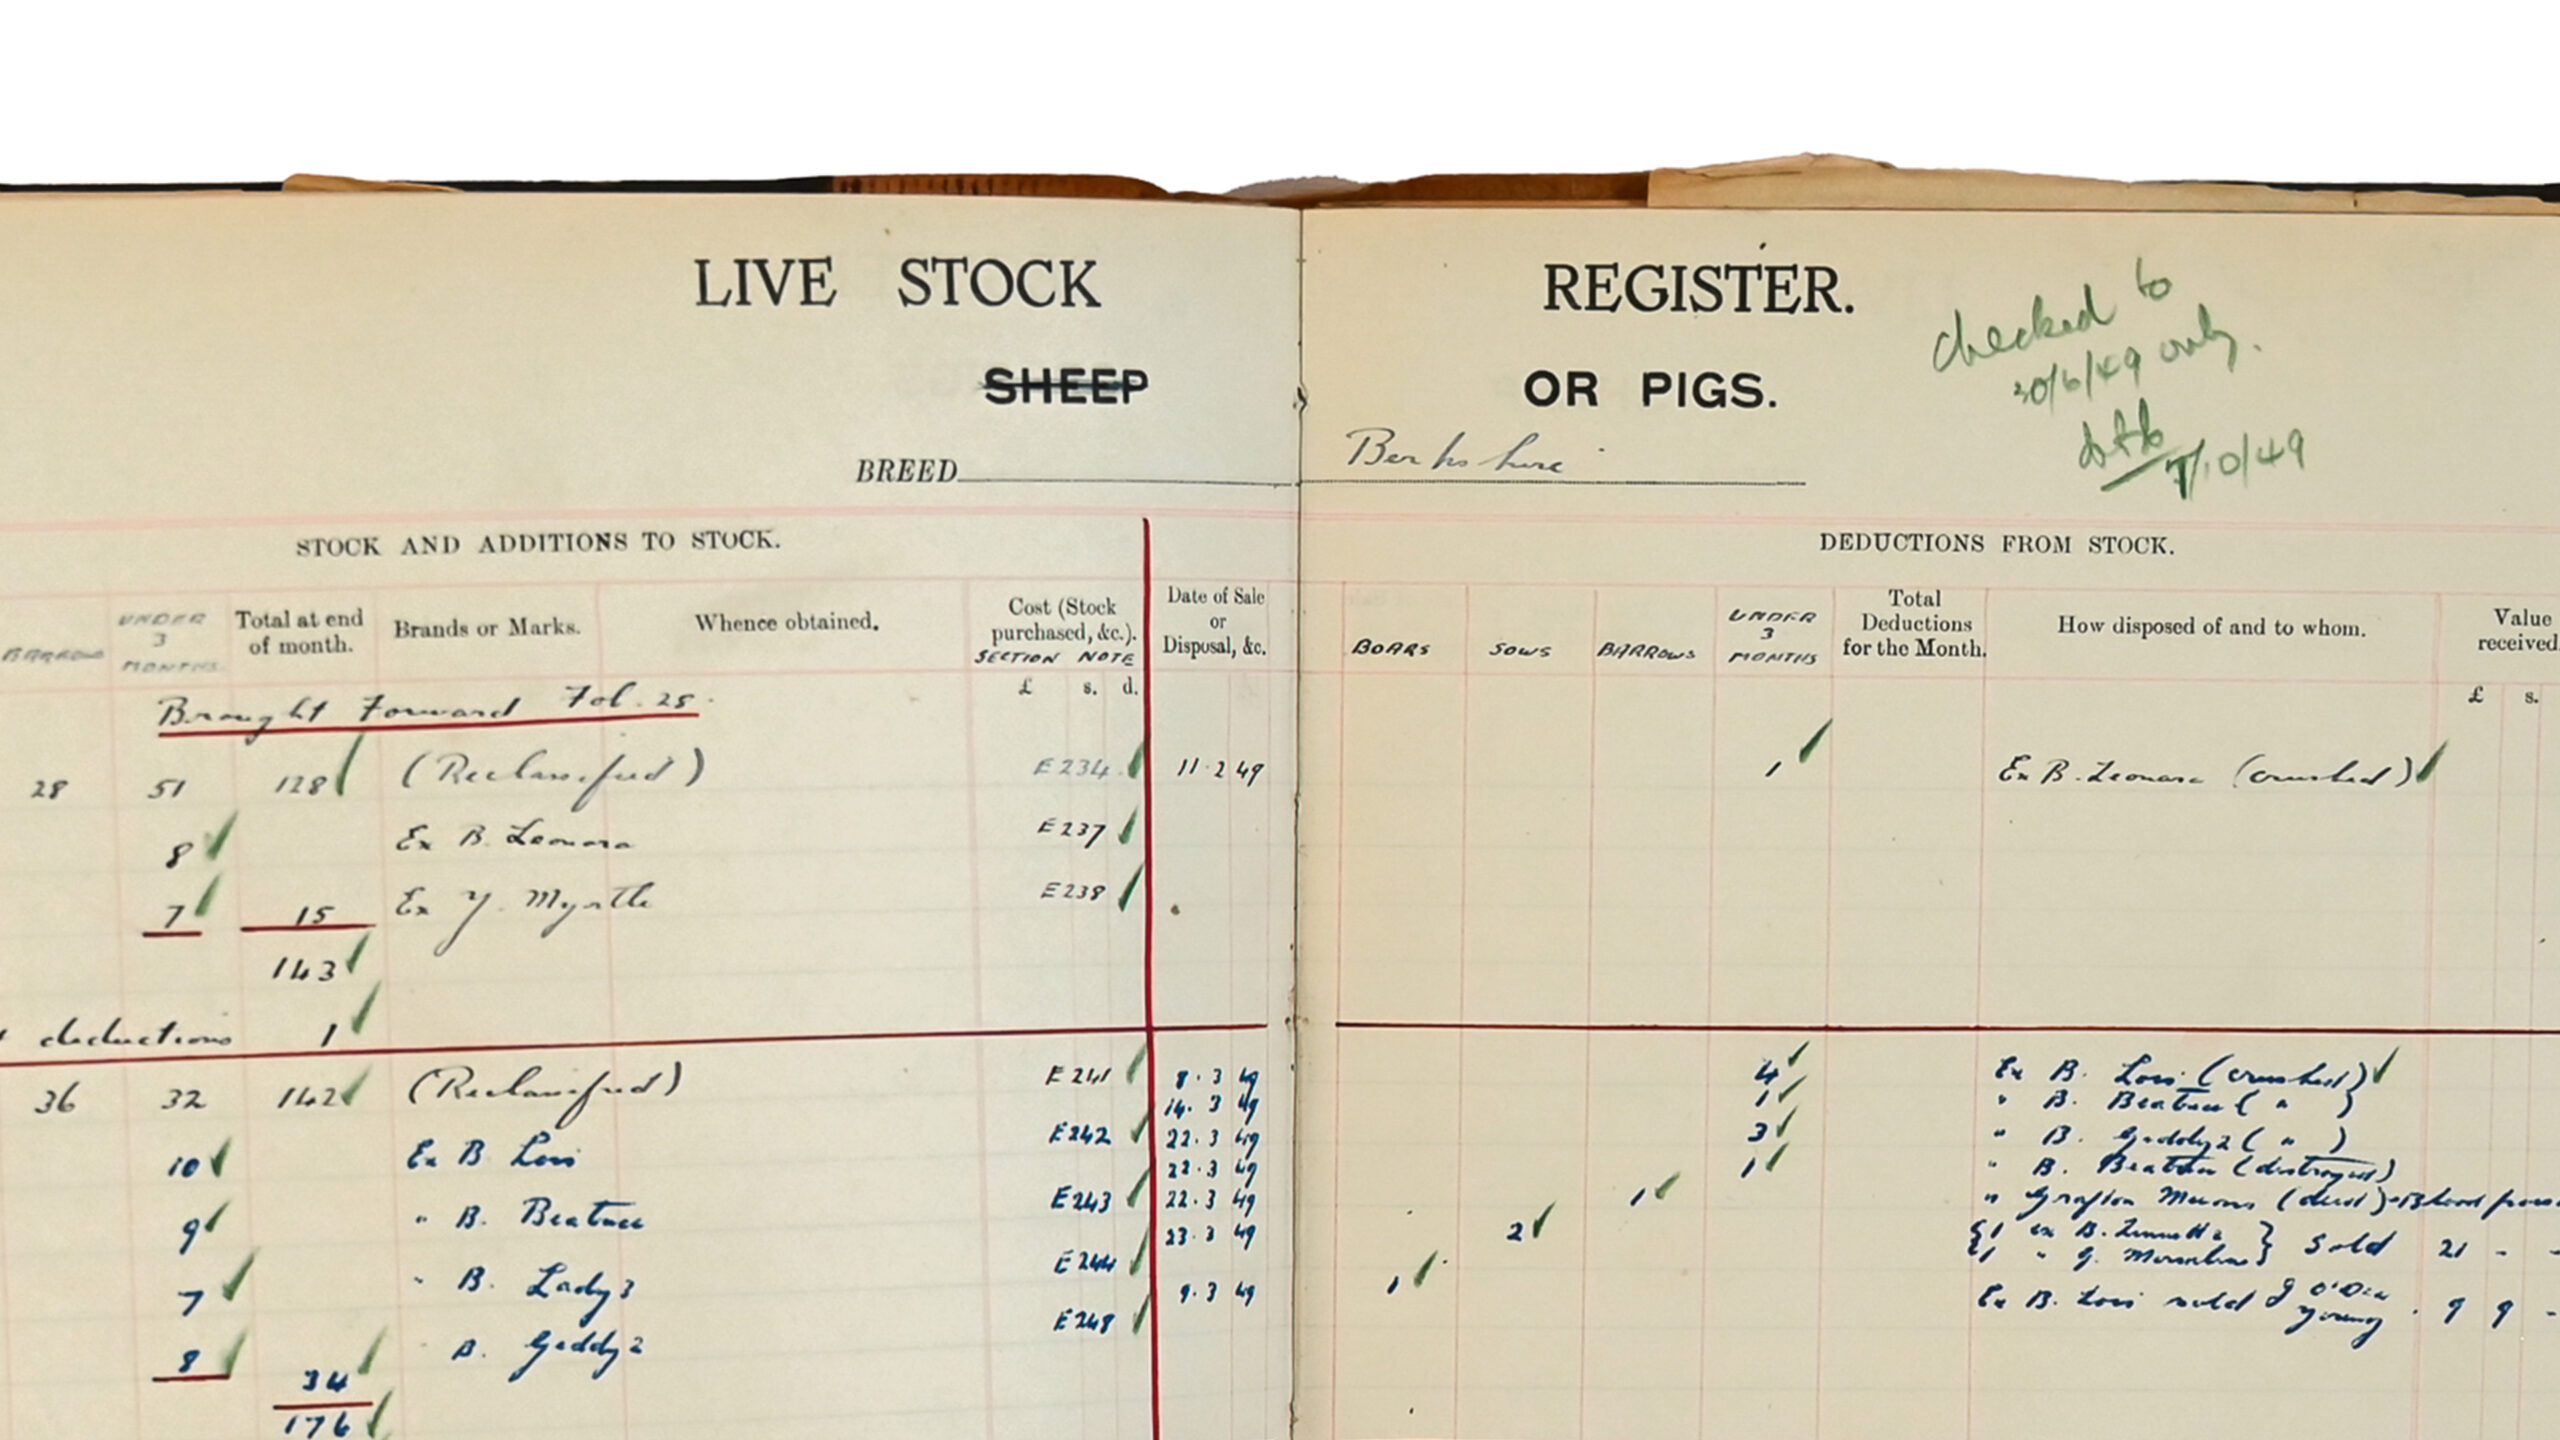 LIVE STOCK REGISTER.
SHEEP OR PIGS.
BREED Berkshire
checked to
30/6/49 only.
7/10/49
STOCK AND ADDITIONS TO STOCK.
DEDUCTIONS FROM STOCK.
BARROWS
UNDER 3 MONTHS
Total at end of month.
Brands or Marks.
Whence obtained.
Cost (Stock purchased, &c.).
SECTION NOTE
£ s. d.
Date of Sale or Disposal, &c.
BOARS
SOWS
BARROWS
UNDER 3 MONTHS
Total Deductions for the Month.
How disposed of and to whom.
Value received
£ s.
Brought Forward Fol. 25.
28 51 128 (Reclassified) E234 11 2 49 1 Ex B. Leonora (crushed)
8 Ex B. Leonora E237
7 15 Ex Y. Myrtle E238
143
deductions 1
36 32 142 (Reclassified) E241
10 Ex B Lois E242
9 " B. Beatrice E243
7 " B. Lady 3 E244
8 34 B. Geddy 2 E248
176
8. 3 49 4 Ex B. Lois (crushed)
14. 3 49 1 " B. Beatrice ( " )
22. 3 49 3 " B. Geddy 2 ( " )
22. 3 49 1 " B. Beatrice (destroyed)
22. 3 49 1 " Grafton (died)
23. 3 49 2 {1 ex B. } Sold 21 - -
{1 " G. }
9. 3 49 1 Ex B. Lois sold 9 9 -
Young